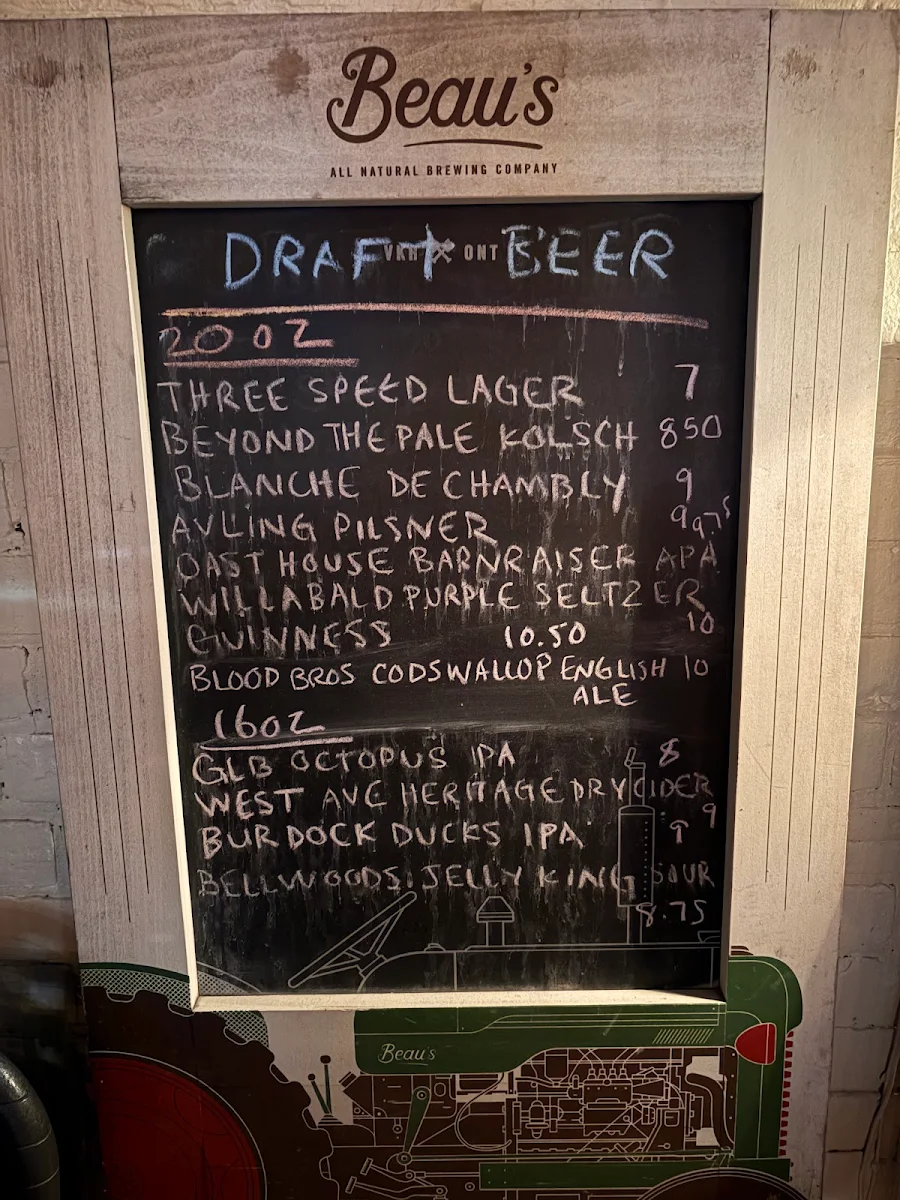 Beau's
ALL NATURAL BREWING COMPANY
DRAFT BEER
VKH ONT
20 OZ
THREE SPEED LAGER 7
BEYOND THE PALE KOLSCH 850
BLANCHE DE CHAMBLY 9
AVLING PILSNER 9
OAST HOUSE BARNRAISER APA 975
WILLABALD PURPLE SELTZER 10
GUINNESS 10.50
BLOOD BROS CODSWALLOP ENGLISH 10
ALE
16oz
GLB OCTOPUS IPA 8
WEST AVE HERITAGE DRY CIDER
9
BURDOCK DUCKS IPA ↑
BELLWOODS JELLY KING SOUR
8.75
Beau's